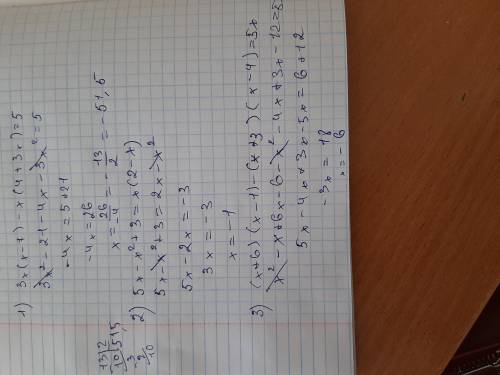 1) 3x(x-1)-x(4+3x)=5
3x²-21-4x-3x²=5
-4x=5+21
-4x=26
x=26/-4=-13/2=-51,5
13|2
10|515
3
2
10
2) 5x-x²+3=x(2-x)
5x-x²+3=2x-x²
5x-2x=-3
3x=-3
x=-1
3) (x+6)(x-1)-(x+3)(x-4)=5x
x²-x+6x-6-x²-4x+3x-12=5
5x-4x+3x-5x=6+12
-3x=18
x=-6